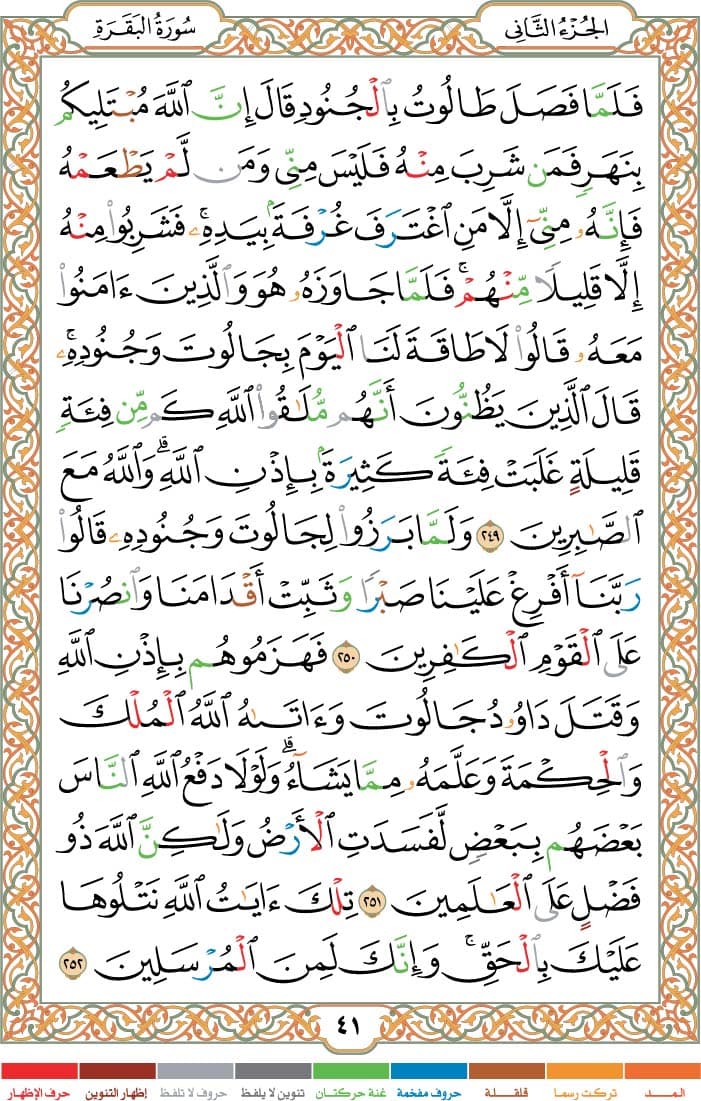 الجُزْءُ الثَّانِي
سُورَةُ البَقَرَةِ
فَلَمَّا فَصَلَ طَالُوتُ بِٱلْجُنُودِ قَالَ إِنَّ ٱللَّهَ مُبْتَلِيكُم
بِنَهَرٍ فَمَن شَرِبَ مِنْهُ فَلَيْسَ مِنِّي وَمَن لَّمْ يَطْعَمْهُ
فَإِنَّهُۥ مِنِّيٓ إِلَّا مَنِ ٱغْتَرَفَ غُرْفَةًۢ بِيَدِهِۦۚ فَشَرِبُوا۟ مِنْهُ
إِلَّا قَلِيلًا مِّنْهُمْۚ فَلَمَّا جَاوَزَهُۥ هُوَ وَٱلَّذِينَ ءَامَنُوا۟
مَعَهُۥ قَالُوا۟ لَا طَاقَةَ لَنَا ٱلْيَوْمَ بِجَالُوتَ وَجُنُودِهِۦۚ
قَالَ ٱلَّذِينَ يَظُنُّونَ أَنَّهُم مُّلَٰقُوا۟ ٱللَّهِ كَم مِّن فِئَةٍ
قَلِيلَةٍ غَلَبَتْ فِئَةً كَثِيرَةًۢ بِإِذْنِ ٱللَّهِۗ وَٱللَّهُ مَعَ
ٱلصَّٰبِرِينَ ٢٤٩ وَلَمَّا بَرَزُوا۟ لِجَالُوتَ وَجُنُودِهِۦ قَالُوا۟
رَبَّنَآ أَفْرِغْ عَلَيْنَا صَبْرًا وَثَبِّتْ أَقْدَامَنَا وَٱنصُرْنَا
عَلَى ٱلْقَوْمِ ٱلْكَٰفِرِينَ ٢٥٠ فَهَزَمُوهُم بِإِذْنِ ٱللَّهِ
وَقَتَلَ دَاوُۥدُ جَالُوتَ وَءَاتَىٰهُ ٱللَّهُ ٱلْمُلْكَ
وَٱلْحِكْمَةَ وَعَلَّمَهُۥ مِمَّا يَشَآءُۗ وَلَوْلَا دَفْعُ ٱللَّهِ ٱلنَّاسَ
بَعْضَهُم بِبَعْضٍ لَّفَسَدَتِ ٱلْأَرْضُ وَلَٰكِنَّ ٱللَّهَ ذُو
فَضْلٍ عَلَى ٱلْعَٰلَمِينَ ٢٥١ تِلْكَ ءَايَٰتُ ٱللَّهِ نَتْلُوهَا
عَلَيْكَ بِٱلْحَقِّۚ وَإِنَّكَ لَمِنَ ٱلْمُرْسَلِينَ ٢٥٢
٤١
المــد تركت رسما قلقـلة حروف مفخمة غنة حركتان تنوين لا يلفظ حروف لا تلفظ إظهار التنوين حرف الإظهار